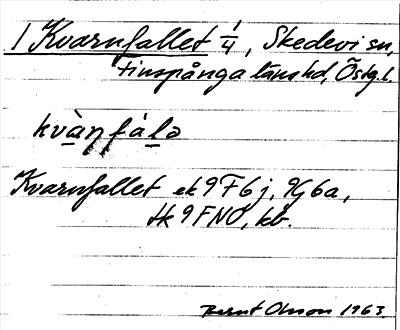 1 Kvarnfallet 1/4, Skedevi sn,
Finspånga läns hd, Östgl.
kvàṇfálə
Kvarnfallet ek 9F6j, 9G6a,
Hk 9FNO, kb.
Bernt Olsson 1963.